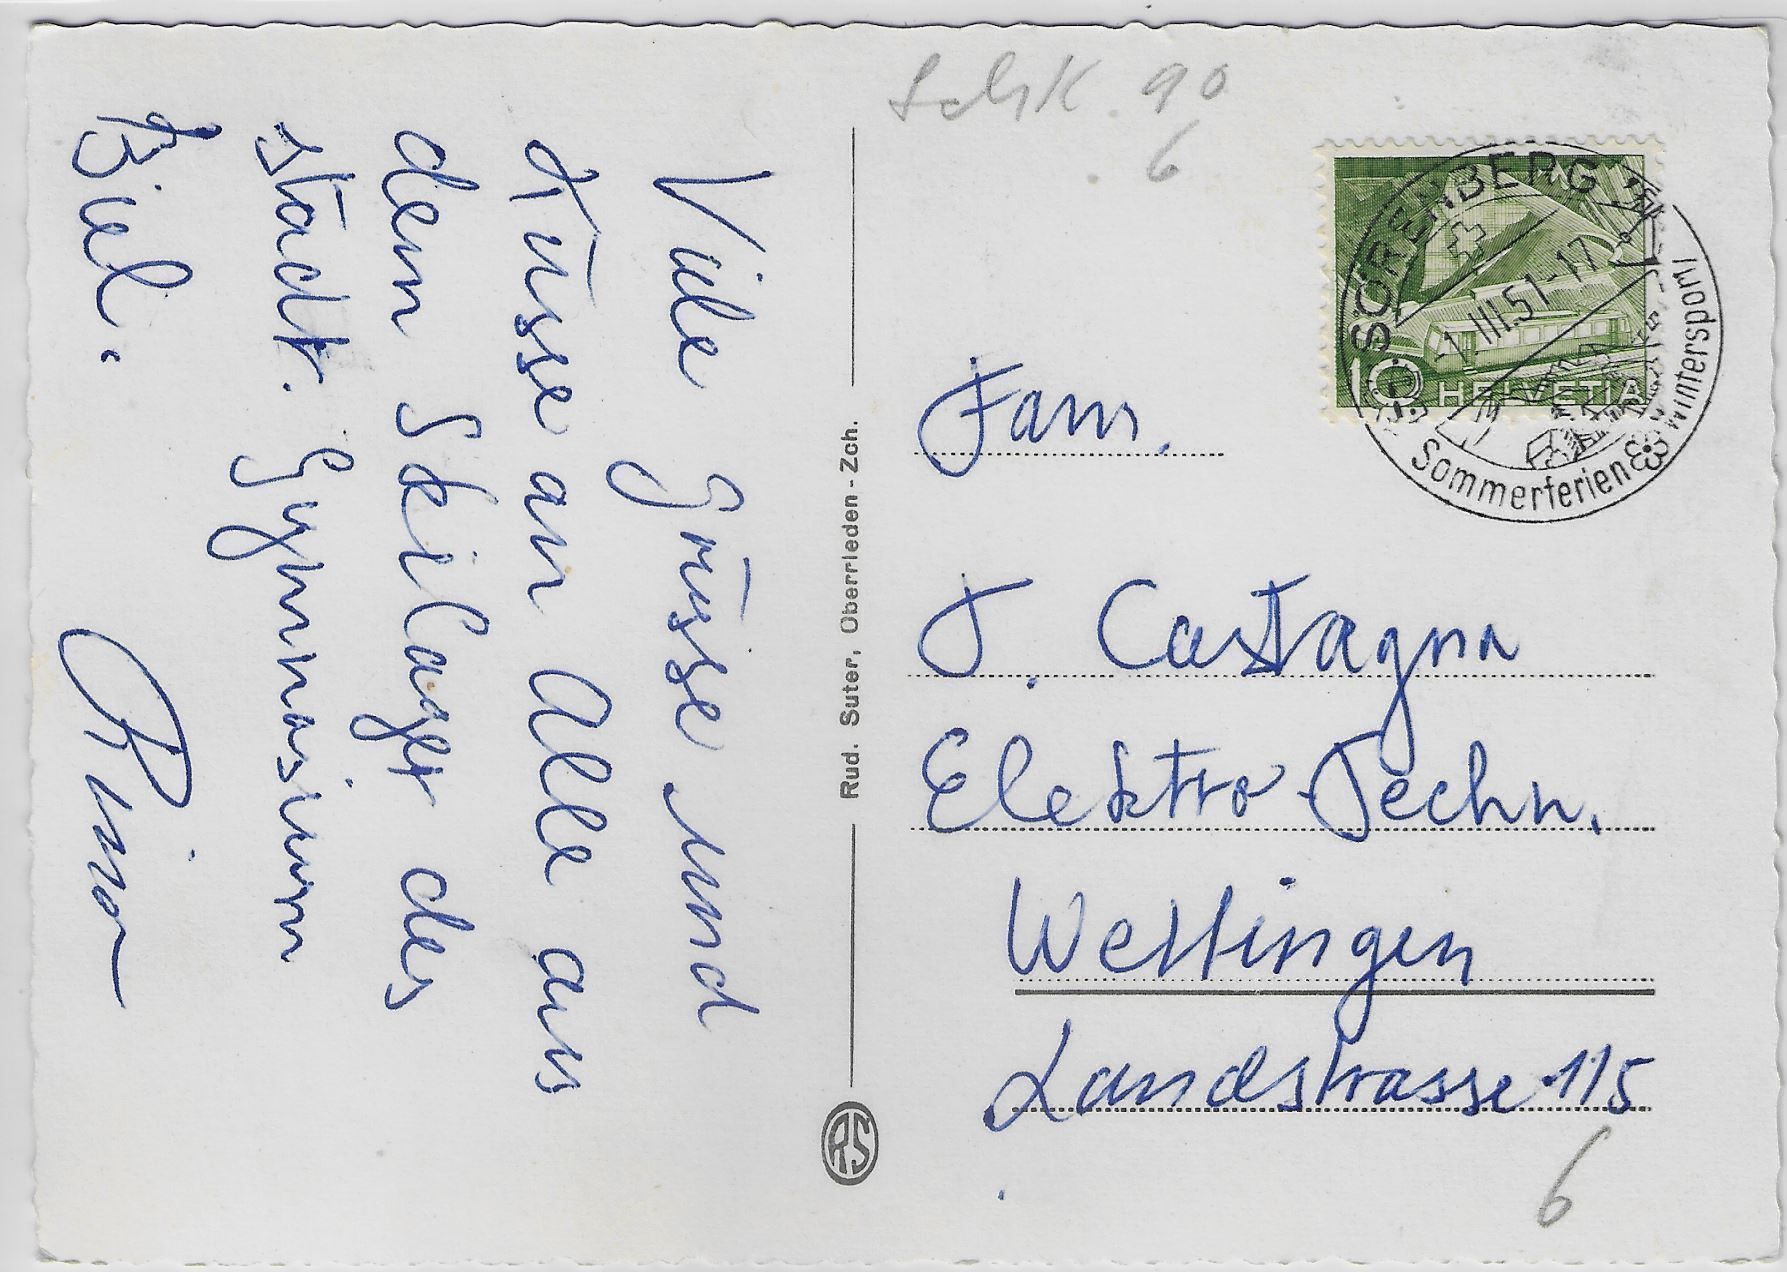 Viele Grüsse und
Küsse an Alle aus
dem Skilager des
städt. Gymnasium
Biel.
Rud. Suter, Oberrieden-Zch.
RS
SchK. 90
6
SÖRENBERG
-1.III.51-17
Sommerferien
Wintersport
10 HELVETIA
Fam.
J. Castagna
Elektro-Techn.
Wettingen
Landstrasse 115
6